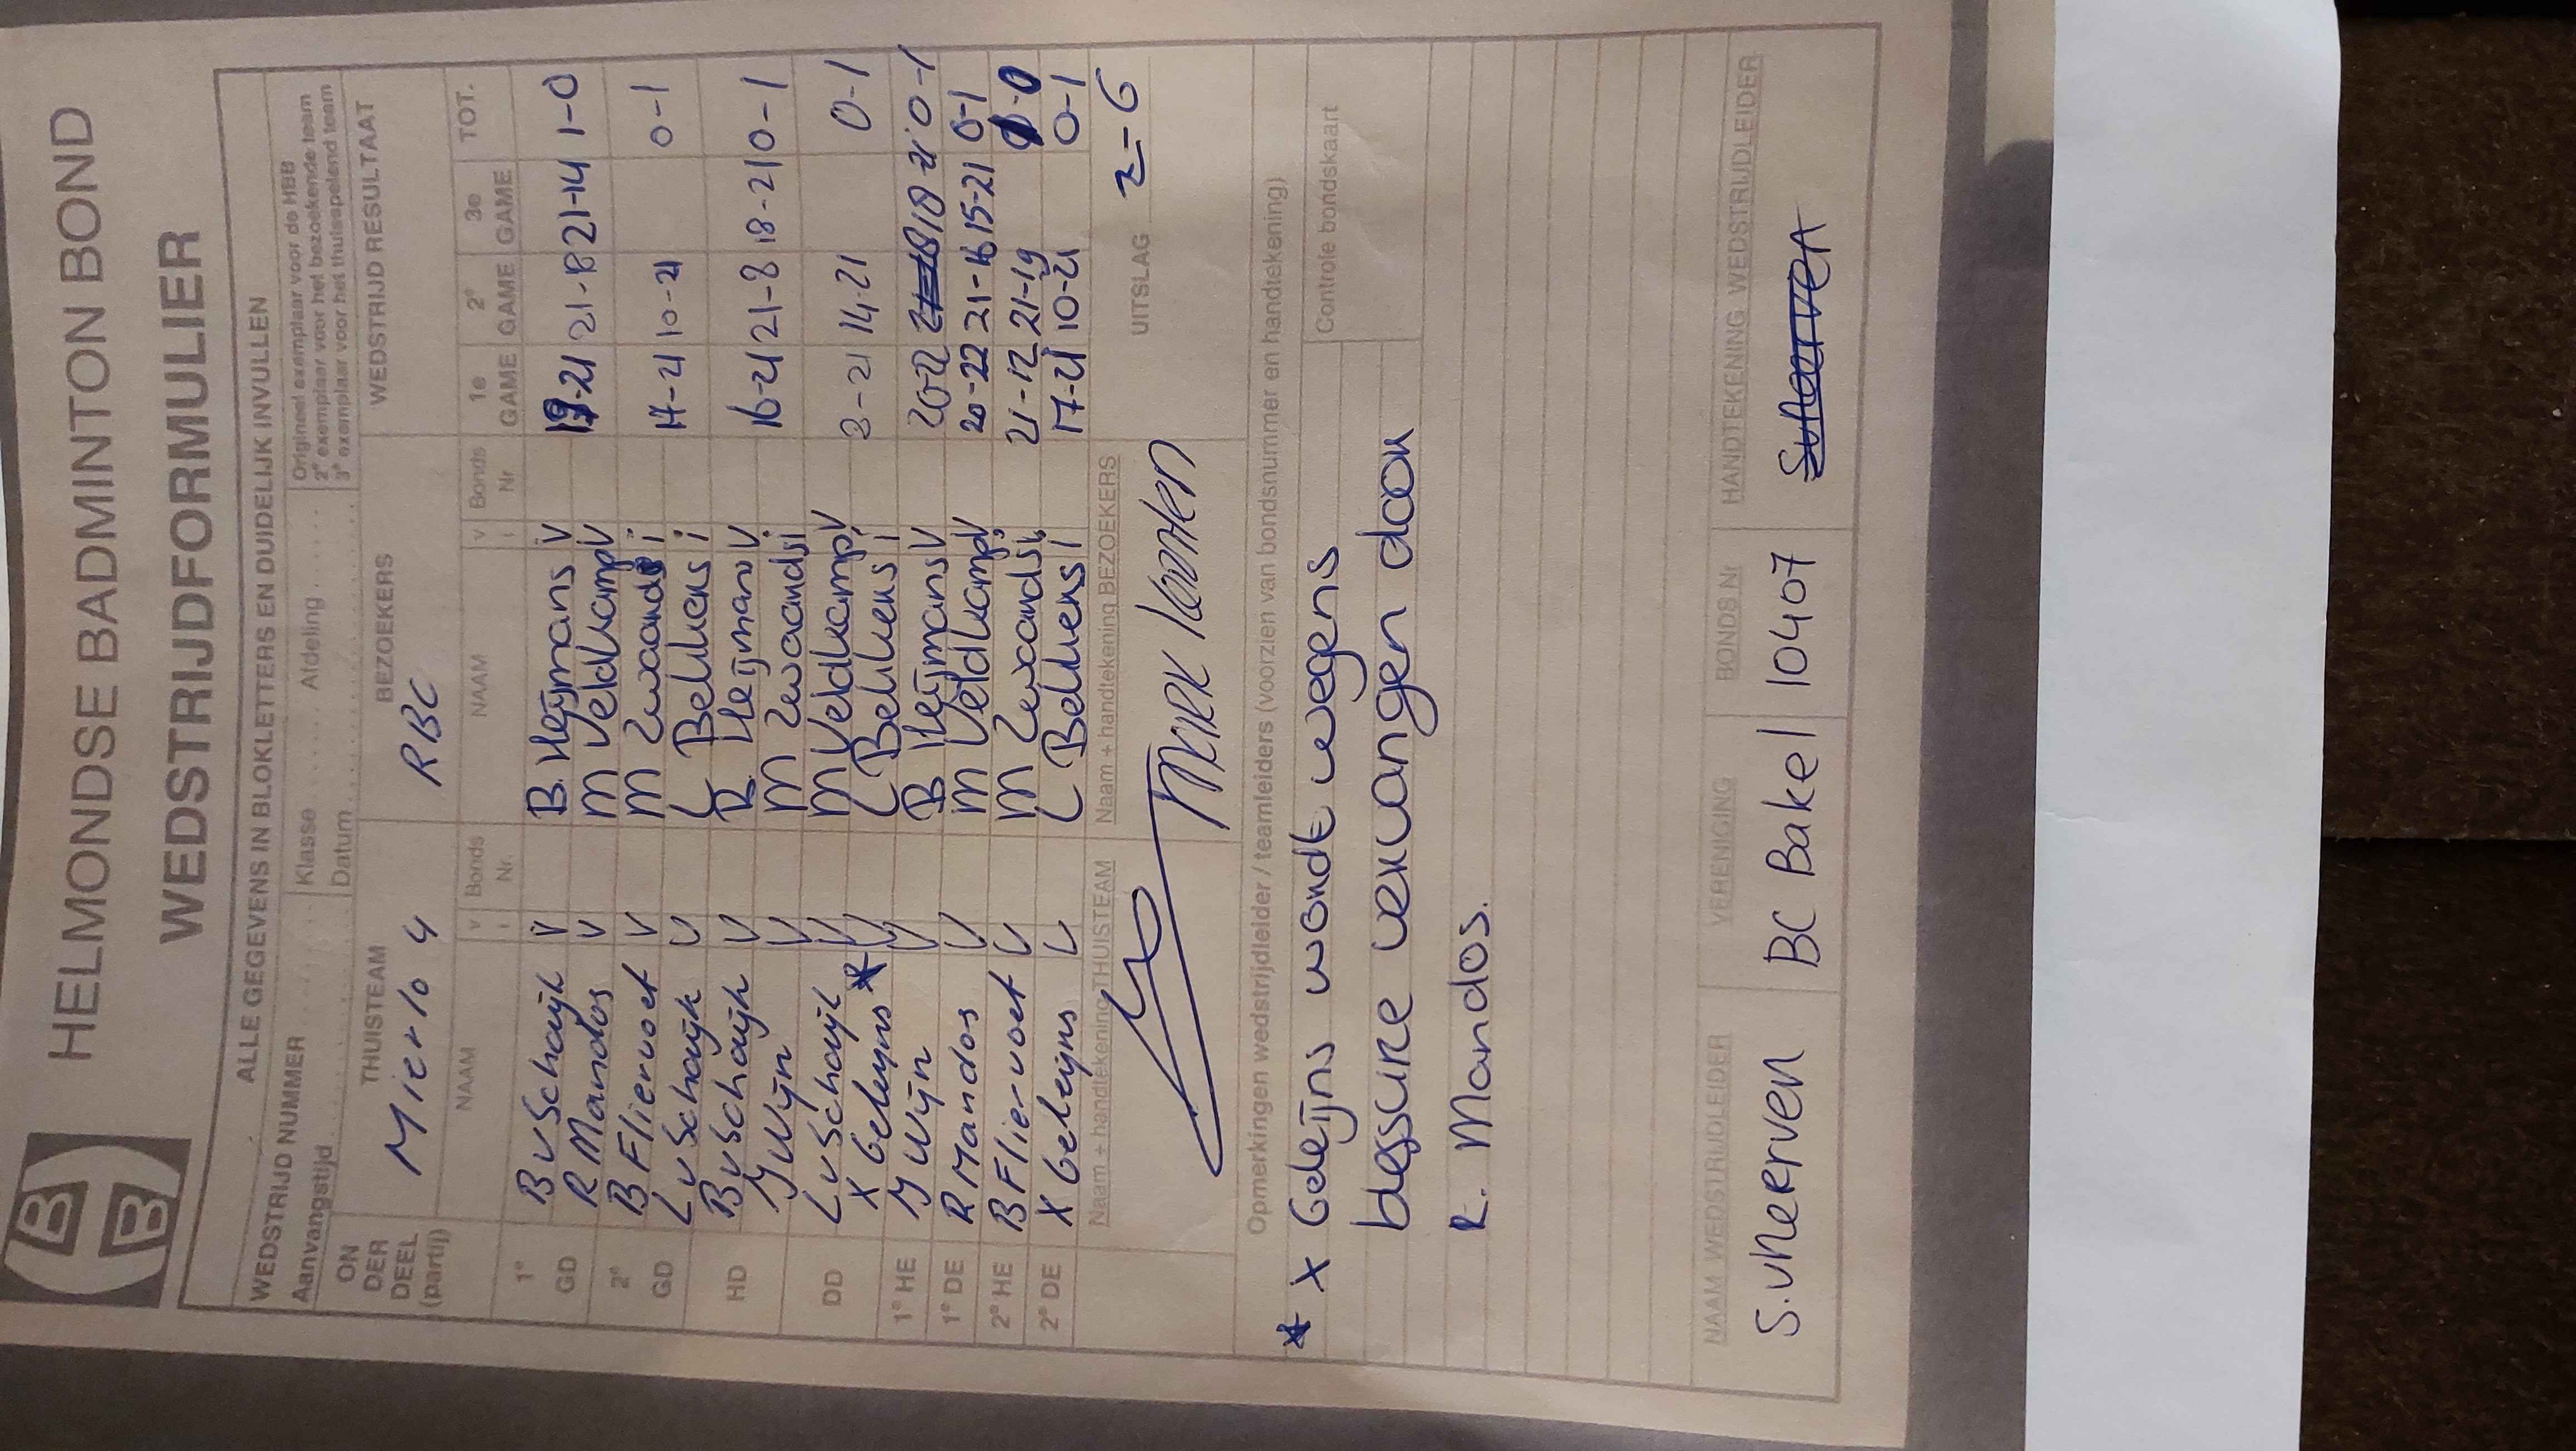 HELMONDSE BADMINTON BOND
WEDSTRIJDFORMULIER
ALLE GEGEVENS IN BLOKLETTERS EN DUIDELIJK INVULLEN
WEDSTRIJD NUMMER
Aanvangstijd
Klasse Afdeling
Datum
Origineel exemplaar voor de HBB
2e exemplaar voor het bezoekende team
3e exemplaar voor het thuisspelend team
ON DER DEEL (partij) THUISTEAM BEZOEKERS WEDSTRIJD RESULTAAT
Mierlo 4 RBC
NAAM v i Bonds Nr. NAAM v i Bonds Nr 1e GAME 2e GAME 3e GAME TOT.
1e GD B v Schaijk V B. Heijmans V 19-21 21-18 21-14 1-0
R Mandos V M Veldkamp V
2e GD B Fliervoet V M Zwaands i 17-21 10-21 0-1
L v Schaijk V L Bekkens i
HD B v Schaijk V B. Heijmans V 16-21 21-8 18-21 0-1
J Wijn V M Zwaands i
DD L v Schaijk V M Veldkamp V 8-21 14-21 0-1
X Geleijns * V L Bekkens i
1e HE J Wijn V B Heijmans V 20-22 18-21 0-1
1e DE R Mandos V M Veldkamp V 20-22 21-16 15-21 0-1
2e HE B Fliervoet V M Zwaands i 21-12 21-19 1-0
2e DE X Geleijns V L Bekkens i 17-21 10-21 0-1
Naam + handtekening THUISTEAM Naam + handtekening BEZOEKERS UITSLAG 2-6
Opmerkingen wedstrijdleider / teamleiders (voorzien van bondsnummer en handtekening)
Controle bondskaart
* X Geleijns wordt wegens
blessure vervangen door
R. Mandos.
NAAM WEDSTRIJDLEIDER VERENIGING BONDS Nr HANDTEKENING WEDSTRIJDLEIDER
S. v Nerven BC Bakel 10407